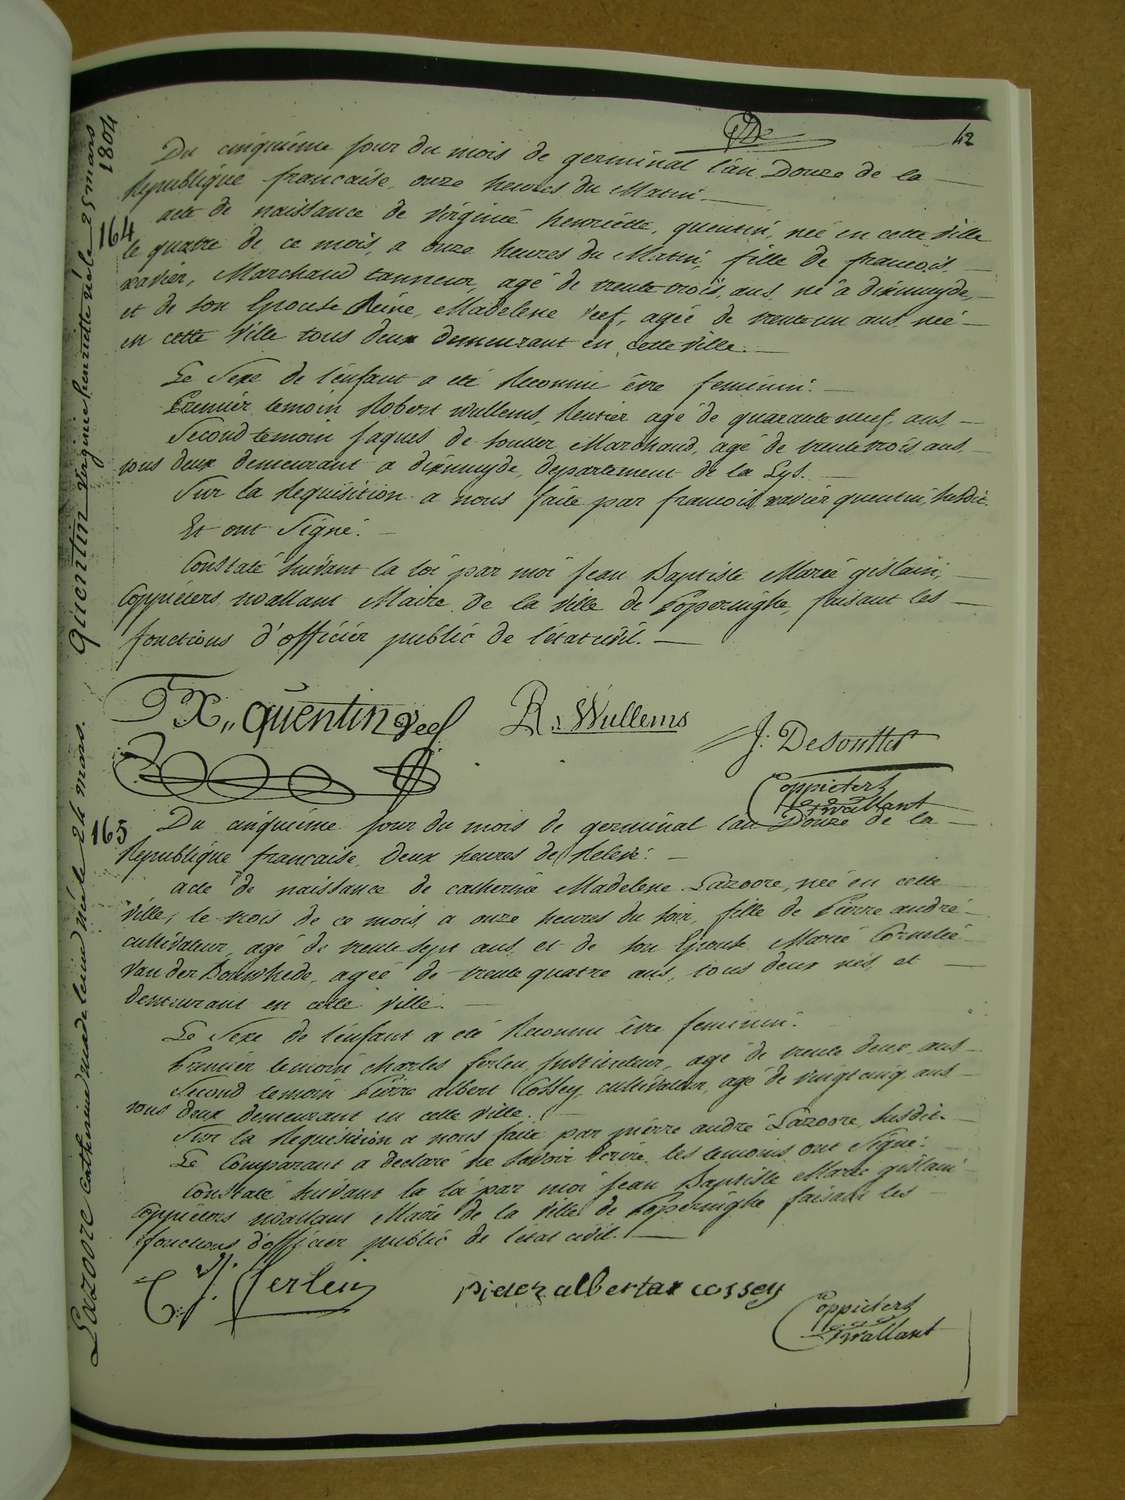 42
Du cinquieme jour du mois de germinal l'an Douze de la
Republique francaise, onze heures du Matin.
164
acte de naissance de Virginie henriette, quentin, née en cette ville
le quatre de ce mois, a onze heures du Matin, fille de francois,
xavier, Marchand tanneur, agé de trente trois ans né a dixmuyde,
et de son Epouse Reine, Madelene Veef, agée de trente un ans née
en cette Ville tous deux demeurant en cette ville.
Le Sexe de l'enfant a eté Reconnu être feminin.
Premier temoin Robert wullems, Rentier agé de quarante neuf ans,
Second temoin jaques de Soutter, Marchand, agé de trente trois ans,
tous deux demeurant a dixmuyde, departement de la Lys.
Sur la Requisition a nous faite par francois xavier quentin, susdit.
Et ont Signé.
Constaté suivant la loi par moi jean Baptiste Marie gislain,
Coppieters wallant Maire de la ville de Poperinghe, faisant les
fonctions d'officier public de l'état civil.
FX,, quentin Veef
R. Wullems
J: Desoutter
Coppieters
Wallant
165
Du cinquieme jour du mois de germinal l'an Douze de la
Republique francaise, deux heures de Relevé.
acte de naissance de catherine Madelene Lazoore, née en cette
ville, le trois de ce mois, a onze heures du soir, fille de Pierre andré
cultivateur, agé de trente sept ans, et de son Epouse Marie Cornelie
Van der agée de trente quatre ans, tous deux nés et
demeurant en cette ville.
Le Sexe de l'enfant a eté Reconnu être feminin.
Premier temoin charles agé de trente deux ans
Second temoin Pierre albert Cossey, cultivateur, agé de vingt cinq ans
tous deux demeurant en cette ville.
Sur la Requisition a nous faite par pierre andré Lazoore, susdit.
Le Comparant a declaré ne savoir Ecrire les temoins ont Signé.
Constaté suivant la loi par moi jean Baptiste Marie gislain
Coppieters wallant Maire de la ville de Poperinghe faisant les
fonctions d'officier public de l'état civil.
pieter albertus cossey
Coppieters
Wallant
quentin virginie henriette née le 25 mars
1804
Lazoore Catherine madeleine née le 24 mars.